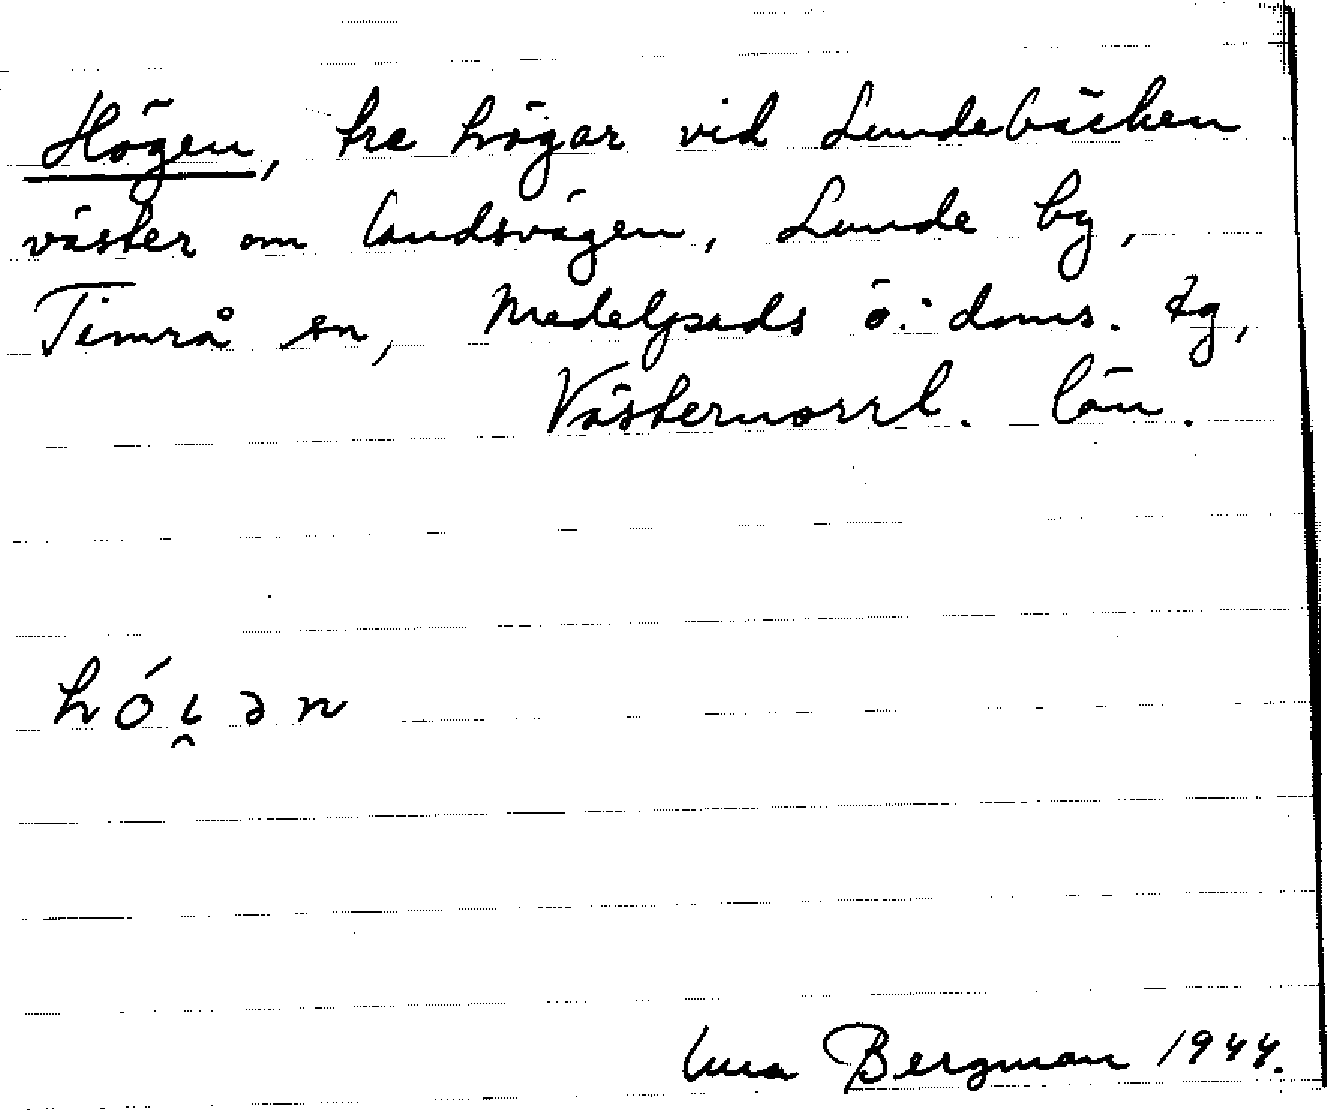 Högen, tre högar vid Lundebäcken
väster om landsvägen, Lunde by,
Timrå sn, Medelpads ö. doms. tg,
Västernorrl. län.
hóı̯ən
Bergman 1944.